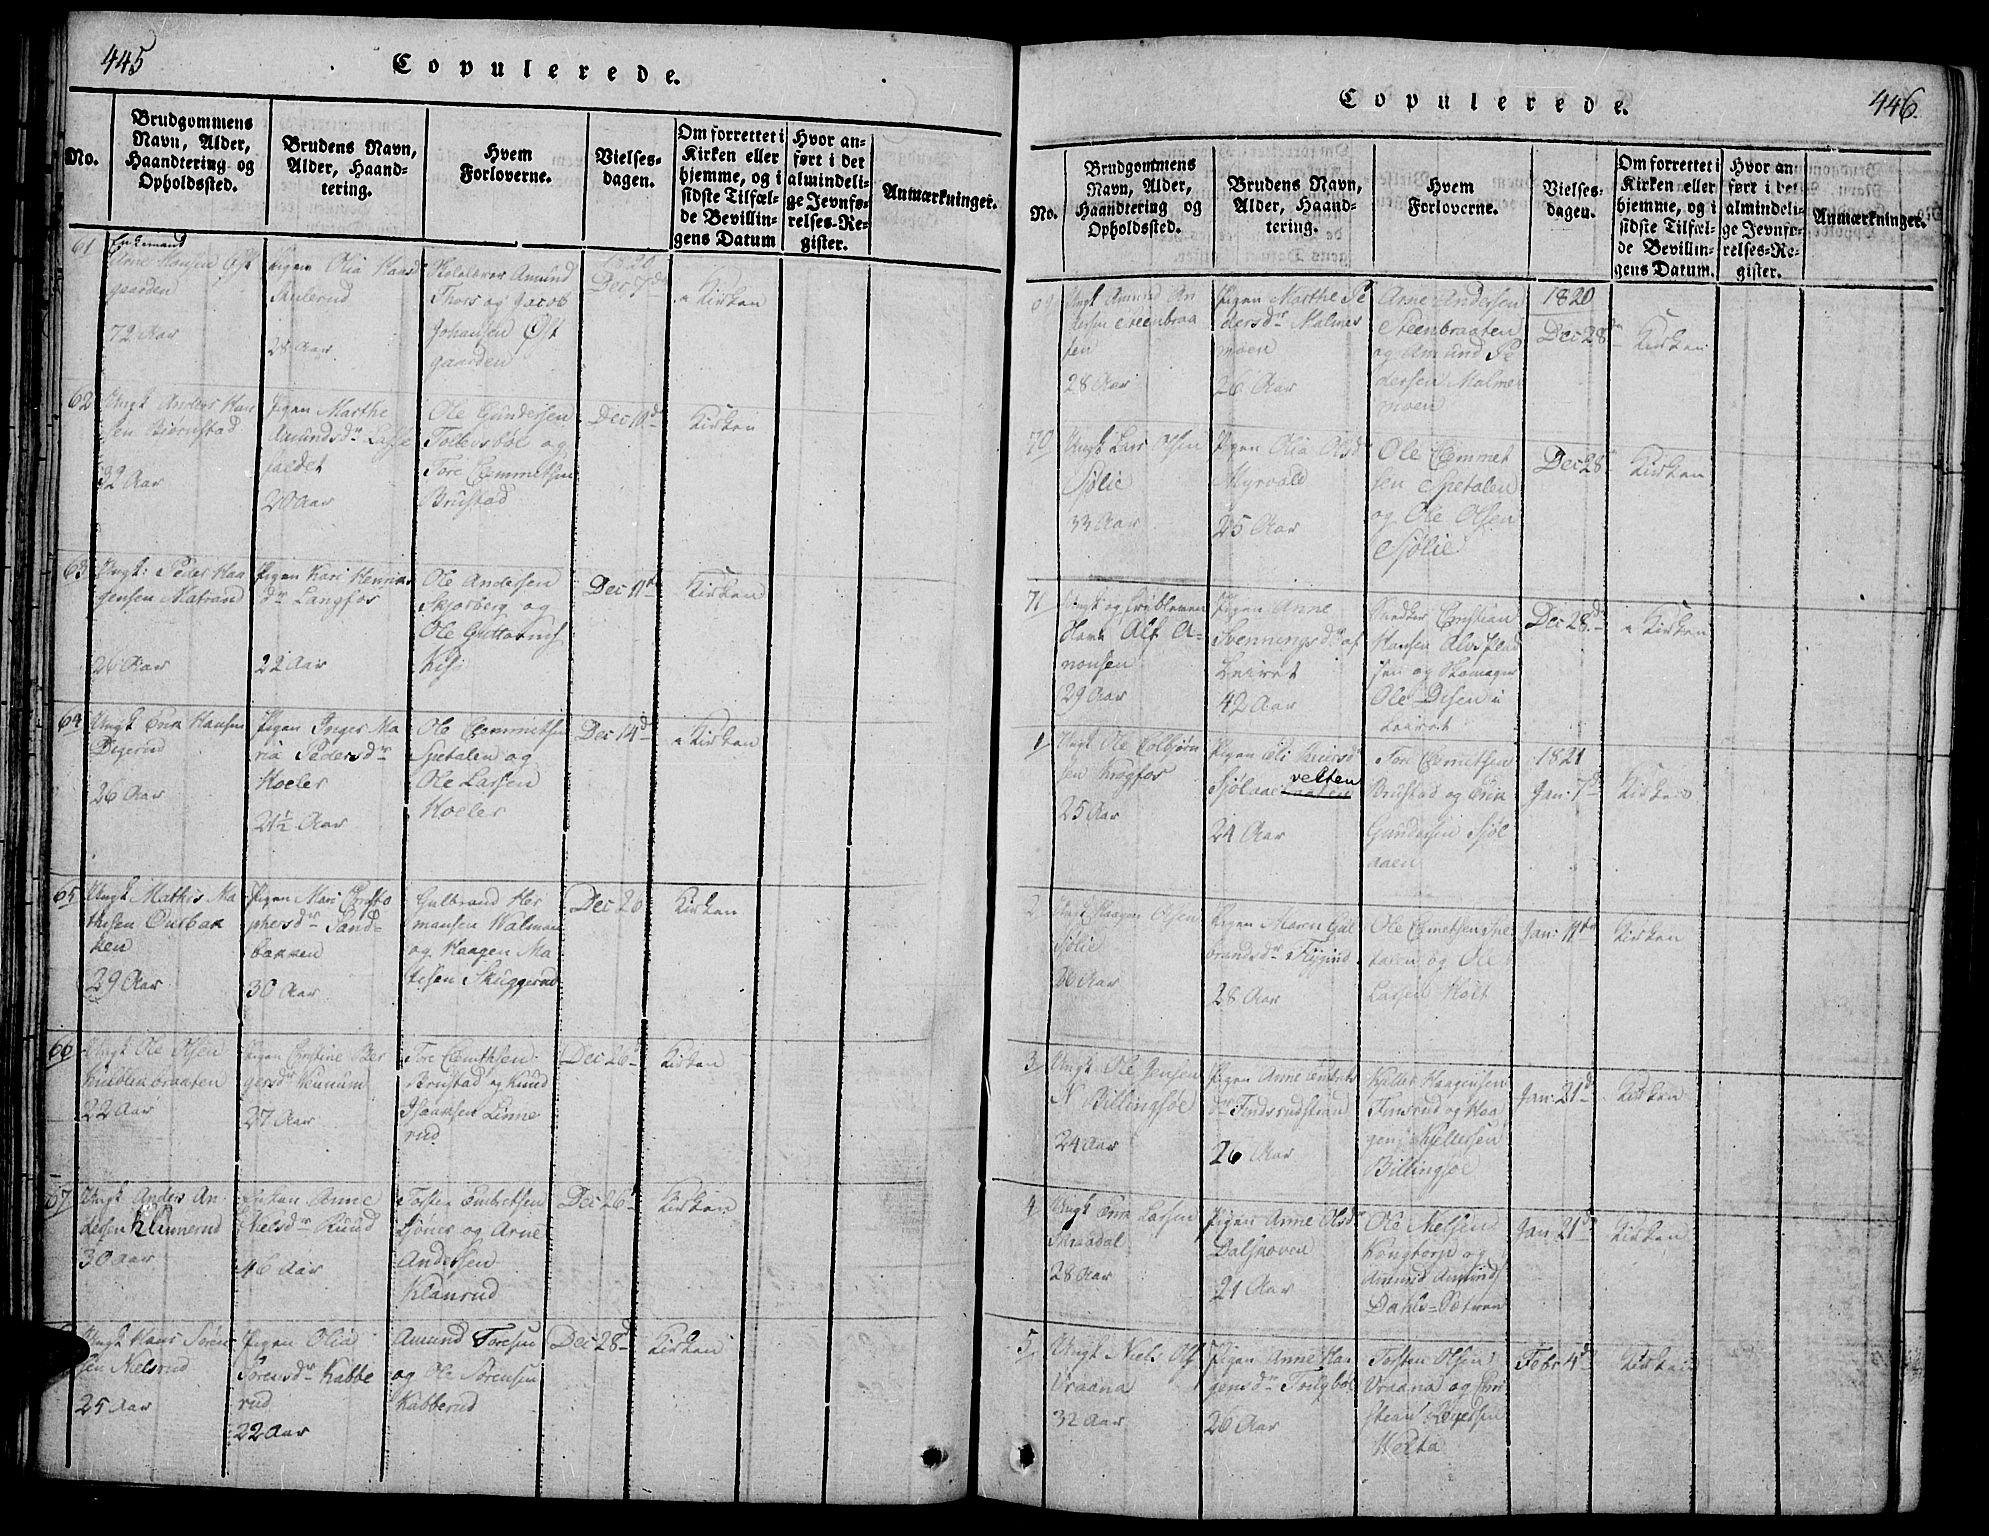 445
Copulerede.
No.
Brudgommens
Navn, Alder,
Haandtering og
Opholdssted.
Brudens Navn,
Alder, Haand-
tering.
Hvem
Forloverne.
Vielses-
dagen.
Om forrettet i
Kirken eller
hjemme, og i
sidste Tilfæl-
de Bevillin-
gens Datum
Hvor an-
ført i det
almindeli-
ge Jevnfø-
relses-Re-
gister.
Anmærkninger.
61
Enkemand
Hansen Øst
gaarden
72 Aar
Pigen Olia
28 Aar
Amund
Thors og Jacob
Johansen Øst
gaarden
1820
Dec 7de
i Kirken
62
Ungk Anders Han
sen Biørnstad
32 Aar
Pigen Marthe
Amundsdr
faldet
20 Aar
Ole Gundersen
og
Tore Clemmetsen
Brustad
Dec 10de
Kirken
63
Ungk: Peder Haa
gensen Matrand
26 Aar
Pigen Kari Henrics
dr Langfos
22 Aar
Ole Andersen
Skjørberg og
Ole Guttorms
Kisi
Dec 11te
Kirken
64
Ungk Erik Hansen
Digerud
26 Aar
Pigen Inger Ma
ria Pedersdr
Moeler
21½ Aar
Ole Clemmetsen
Spetalen og
Ole Larsen
Moeler
Dec 14d
i Kirken
65
Ungk Mathis Ma
thisen Ourbak
ken
29 Aar
Pigen Mari Christo
phersdr Sand-
bakken
30 Aar
Gulbrand Her
mansen Walman
og Haagen Ma
tisen Skuggerud
Dec 26
Kirken
66
Ungk Ole Olsen
braaten
22 Aar
Pigen Christine Ber
gersdr
27 Aar
Tore Clemthsen
Brustad og Knud
Isaaksen Linne
rud
Dec 26d
Kirken
67
Ungk Anders An
dersen Klinnerud
30 Aar
Enken Anne
Nielsdr Ruud
46 Aar
Torsten Embretsen
og Arne
Andersen
Klanrud
Dec 26d
Kirken
Ungk Hans Søren
sen Nelsrud
25 Aar
Pigen Olia
Sørensdr Kabbe
rud
22 Aar
Amund Toresen
og Ole Sørensen
Kabberud
Dec 28d
Kirken
446.
Copulerede.
No.
Brudgommens
Navn, Alder,
Haandtering og
Opholdssted.
Brudens Navn,
Alder, Haand-
tering.
Hvem
Forloverne.
Vielses-
dagen.
Om forrettet i
Kirken eller
hjemme, og i
sidste Tilfæl-
de Bevillin-
gens Datum.
Hvor an-
ført i det
almindeli-
ge Jevnfø-
relses-Re-
gister.
Anmærkninger.
Ungk Amund An
dersen Steenbraa
ten
28 Aar
Pigen Marthe Pe
dersdr Malmer
moen
26 Aar
Arne Andersen
Steenbraaten
og Amund Pe
dersen Malmer
moen
1820
Dec 28de
Kirken
70
Ungk Lars Olsen
Sjølie
33 Aar
Pigen Olia Olsd
Myrvold
25 Aar
Ole Clemmet
sen Spetalen
og Ole Olsen
Sjølie
Dec 28
Kirken
71
Ungk og
Alf A-
nonsen
29 Aar
Pigen Anne
Svenningsdr af
Leiret
42 Aar
Snedker Christian
Hansen
sen og Skomager
Ole Disen i
Leiret
Dec 28d
i Kirken
1
Ungk Ole Colbiørn
sen Krogfos
25 Aar
Pigen Eli
Sjølaae
velten
24 Aar
Tore Clemetsen
Brustad og Erik
Gundersen Sjøl
aaen
1821
Jan: 7de
Kirken
2
Ungk Haagen Olsen
Sjølie
26 Aar
Pigen Maren Gul
brandsdr Flygind
28 Aar
Ole Clemetsen Spe
talen og Ole
Larsen Holt
Jan: 11te
Kirken
3
Ungk Ole Jensen
N Billingsøe
24 Aar
Pigen Anne Embrets
dr Findsrudstrand
26 Aar
Kjeller Haagensen
Finsrud og Haa
gen Kjellersen
Billingsøe
Jan: 21d
Kirken
4
Ungk Erik Larsen
Skradal
28 Aar
Pigen Anne Olsdr
Dalskoven
21 Aar
Ole Nielsen
Kongtorp og
Amund Amunds
Dahls-Sætren
Jan: 21d
Kirken
5
Ungk Niels Ols
Vraana
32 Aar
Pigen Anne Haa
gensdr
26 Aar
Torsten Olsen
Vraana og Chri
stian
Febr 4d
Kirken